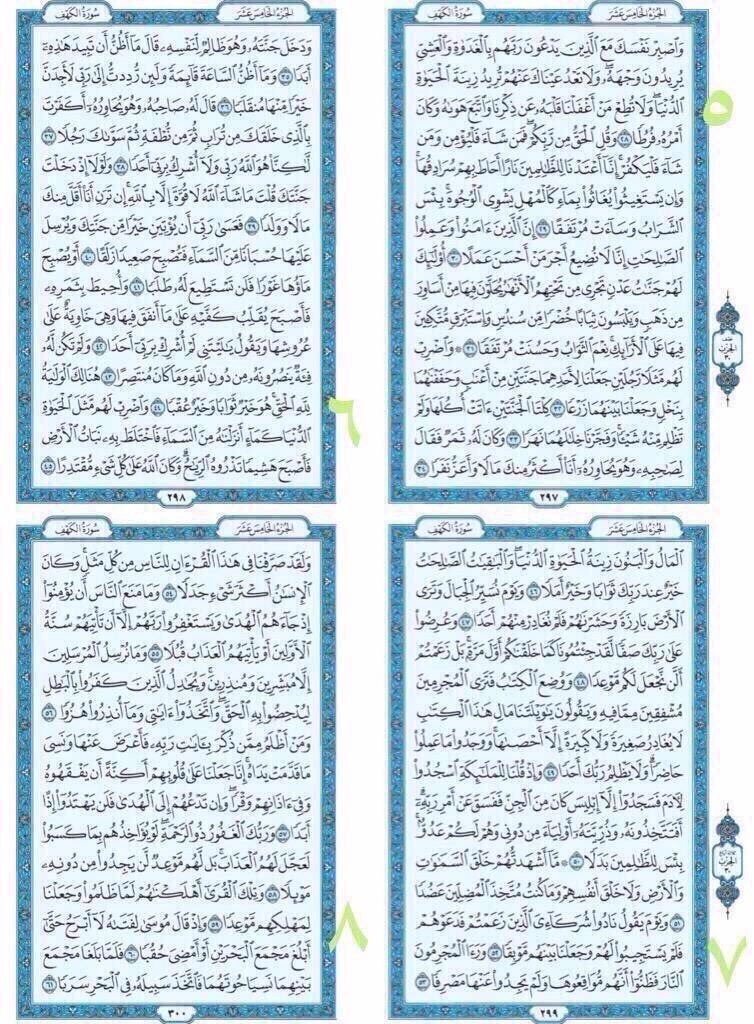 الجزء الخامس عشر
سورة الكهف
وَاصْبِرْ نَفْسَكَ مَعَ الَّذِينَ يَدْعُونَ رَبَّهُم بِالْغَدَاةِ وَالْعَشِيِّ
يُرِيدُونَ وَجْهَهُ وَلَا تَعْدُ عَيْنَاكَ عَنْهُمْ تُرِيدُ زِينَةَ الْحَيَاةِ
الدُّنْيَا وَلَا تُطِعْ مَنْ أَغْفَلْنَا قَلْبَهُ عَن ذِكْرِنَا وَاتَّبَعَ هَوَاهُ وَكَانَ
أَمْرُهُ فُرُطًا ٢٨ وَقُلِ الْحَقُّ مِن رَّبِّكُمْ فَمَن شَاءَ فَلْيُؤْمِن وَمَن
شَاءَ فَلْيَكْفُرْ إِنَّا أَعْتَدْنَا لِلظَّالِمِينَ نَارًا أَحَاطَ بِهِمْ سُرَادِقُهَا
وَإِن يَسْتَغِيثُوا يُغَاثُوا بِمَاءٍ كَالْمُهْلِ يَشْوِي الْوُجُوهَ بِئْسَ
الشَّرَابُ وَسَاءَتْ مُرْتَفَقًا ٢٩ إِنَّ الَّذِينَ آمَنُوا وَعَمِلُوا
الصَّالِحَاتِ إِنَّا لَا نُضِيعُ أَجْرَ مَنْ أَحْسَنَ عَمَلًا ٣٠ أُولَٰئِكَ
لَهُمْ جَنَّاتُ عَدْنٍ تَجْرِي مِن تَحْتِهِمُ الْأَنْهَارُ يُحَلَّوْنَ فِيهَا مِنْ أَسَاوِرَ
مِن ذَهَبٍ وَيَلْبَسُونَ ثِيَابًا خُضْرًا مِّن سُندُسٍ وَإِسْتَبْرَقٍ مُّتَّكِئِينَ
فِيهَا عَلَى الْأَرَائِكِ نِعْمَ الثَّوَابُ وَحَسُنَتْ مُرْتَفَقًا ٣١ وَاضْرِبْ
لَهُم مَّثَلًا رَّجُلَيْنِ جَعَلْنَا لِأَحَدِهِمَا جَنَّتَيْنِ مِنْ أَعْنَابٍ وَحَفَفْنَاهُمَا
بِنَخْلٍ وَجَعَلْنَا بَيْنَهُمَا زَرْعًا ٣٢ كِلْتَا الْجَنَّتَيْنِ آتَتْ أُكُلَهَا وَلَمْ
تَظْلِم مِّنْهُ شَيْئًا وَفَجَّرْنَا خِلَالَهُمَا نَهَرًا ٣٣ وَكَانَ لَهُ ثَمَرٌ فَقَالَ
لِصَاحِبِهِ وَهُوَ يُحَاوِرُهُ أَنَا أَكْثَرُ مِنكَ مَالًا وَأَعَزُّ نَفَرًا ٣٤
٢٩٧
٥
الجزء الخامس عشر
سورة الكهف
وَدَخَلَ جَنَّتَهُ وَهُوَ ظَالِمٌ لِّنَفْسِهِ قَالَ مَا أَظُنُّ أَن تَبِيدَ هَٰذِهِ
أَبَدًا ٣٥ وَمَا أَظُنُّ السَّاعَةَ قَائِمَةً وَلَئِن رُّدِدتُّ إِلَىٰ رَبِّي لَأَجِدَنَّ
خَيْرًا مِّنْهَا مُنقَلَبًا ٣٦ قَالَ لَهُ صَاحِبُهُ وَهُوَ يُحَاوِرُهُ أَكَفَرْتَ
بِالَّذِي خَلَقَكَ مِن تُرَابٍ ثُمَّ مِن نُّطْفَةٍ ثُمَّ سَوَّاكَ رَجُلًا ٣٧
لَّٰكِنَّا هُوَ اللَّهُ رَبِّي وَلَا أُشْرِكُ بِرَبِّي أَحَدًا ٣٨ وَلَوْلَا إِذْ دَخَلْتَ
جَنَّتَكَ قُلْتَ مَا شَاءَ اللَّهُ لَا قُوَّةَ إِلَّا بِاللَّهِ إِن تَرَنِ أَنَا أَقَلَّ مِنكَ
مَالًا وَوَلَدًا ٣٩ فَعَسَىٰ رَبِّي أَن يُؤْتِيَنِ خَيْرًا مِّن جَنَّتِكَ وَيُرْسِلَ
عَلَيْهَا حُسْبَانًا مِّنَ السَّمَاءِ فَتُصْبِحَ صَعِيدًا زَلَقًا ٤٠ أَوْ يُصْبِحَ
مَاؤُهَا غَوْرًا فَلَن تَسْتَطِيعَ لَهُ طَلَبًا ٤١ وَأُحِيطَ بِثَمَرِهِ
فَأَصْبَحَ يُقَلِّبُ كَفَّيْهِ عَلَىٰ مَا أَنفَقَ فِيهَا وَهِيَ خَاوِيَةٌ عَلَىٰ
عُرُوشِهَا وَيَقُولُ يَا لَيْتَنِي لَمْ أُشْرِكْ بِرَبِّي أَحَدًا ٤٢ وَلَمْ تَكُن لَّهُ
فِئَةٌ يَنصُرُونَهُ مِن دُونِ اللَّهِ وَمَا كَانَ مُنتَصِرًا ٤٣ هُنَالِكَ الْوَلَايَةُ
لِلَّهِ الْحَقِّ هُوَ خَيْرٌ ثَوَابًا وَخَيْرٌ عُقْبًا ٤٤ وَاضْرِبْ لَهُم مَّثَلَ الْحَيَاةِ
الدُّنْيَا كَمَاءٍ أَنزَلْنَاهُ مِنَ السَّمَاءِ فَاخْتَلَطَ بِهِ نَبَاتُ الْأَرْضِ
فَأَصْبَحَ هَشِيمًا تَذْرُوهُ الرِّيَاحُ وَكَانَ اللَّهُ عَلَىٰ كُلِّ شَيْءٍ مُّقْتَدِرًا ٤٥
٢٩٨
٦
الجزء الخامس عشر
سورة الكهف
الْمَالُ وَالْبَنُونَ زِينَةُ الْحَيَاةِ الدُّنْيَا وَالْبَاقِيَاتُ الصَّالِحَاتُ
خَيْرٌ عِندَ رَبِّكَ ثَوَابًا وَخَيْرٌ أَمَلًا ٤٦ وَيَوْمَ نُسَيِّرُ الْجِبَالَ وَتَرَى
الْأَرْضَ بَارِزَةً وَحَشَرْنَاهُمْ فَلَمْ نُغَادِرْ مِنْهُمْ أَحَدًا ٤٧ وَعُرِضُوا
عَلَىٰ رَبِّكَ صَفًّا لَّقَدْ جِئْتُمُونَا كَمَا خَلَقْنَاكُمْ أَوَّلَ مَرَّةٍ بَلْ زَعَمْتُمْ
أَلَّن نَّجْعَلَ لَكُم مَّوْعِدًا ٤٨ وَوُضِعَ الْكِتَابُ فَتَرَى الْمُجْرِمِينَ
مُشْفِقِينَ مِمَّا فِيهِ وَيَقُولُونَ يَا وَيْلَتَنَا مَالِ هَٰذَا الْكِتَابِ
لَا يُغَادِرُ صَغِيرَةً وَلَا كَبِيرَةً إِلَّا أَحْصَاهَا وَوَجَدُوا مَا عَمِلُوا
حَاضِرًا وَلَا يَظْلِمُ رَبُّكَ أَحَدًا ٤٩ وَإِذْ قُلْنَا لِلْمَلَائِكَةِ اسْجُدُوا
لِآدَمَ فَسَجَدُوا إِلَّا إِبْلِيسَ كَانَ مِنَ الْجِنِّ فَفَسَقَ عَنْ أَمْرِ رَبِّهِ
أَفَتَتَّخِذُونَهُ وَذُرِّيَّتَهُ أَوْلِيَاءَ مِن دُونِي وَهُمْ لَكُمْ عَدُوٌّ
بِئْسَ لِلظَّالِمِينَ بَدَلًا ٥٠ مَّا أَشْهَدتُّهُمْ خَلْقَ السَّمَاوَاتِ
وَالْأَرْضِ وَلَا خَلْقَ أَنفُسِهِمْ وَمَا كُنتُ مُتَّخِذَ الْمُضِلِّينَ عَضُدًا
٥١ وَيَوْمَ يَقُولُ نَادُوا شُرَكَائِيَ الَّذِينَ زَعَمْتُمْ فَدَعَوْهُمْ
فَلَمْ يَسْتَجِيبُوا لَهُمْ وَجَعَلْنَا بَيْنَهُم مَّوْبِقًا ٥٢ وَرَأَى الْمُجْرِمُونَ
النَّارَ فَظَنُّوا أَنَّهُم مُّوَاقِعُوهَا وَلَمْ يَجِدُوا عَنْهَا مَصْرِفًا ٥٣
٢٩٩
٧
الجزء الخامس عشر
سورة الكهف
وَلَقَدْ صَرَّفْنَا فِي هَٰذَا الْقُرْآنِ لِلنَّاسِ مِن كُلِّ مَثَلٍ وَكَانَ
الْإِنسَانُ أَكْثَرَ شَيْءٍ جَدَلًا ٥٤ وَمَا مَنَعَ النَّاسَ أَن يُؤْمِنُوا
إِذْ جَاءَهُمُ الْهُدَىٰ وَيَسْتَغْفِرُوا رَبَّهُمْ إِلَّا أَن تَأْتِيَهُمْ سُنَّةُ
الْأَوَّلِينَ أَوْ يَأْتِيَهُمُ الْعَذَابُ قُبُلًا ٥٥ وَمَا نُرْسِلُ الْمُرْسَلِينَ
إِلَّا مُبَشِّرِينَ وَمُنذِرِينَ وَيُجَادِلُ الَّذِينَ كَفَرُوا بِالْبَاطِلِ
لِيُدْحِضُوا بِهِ الْحَقَّ وَاتَّخَذُوا آيَاتِي وَمَا أُنذِرُوا هُزُوًا ٥٦
وَمَنْ أَظْلَمُ مِمَّن ذُكِّرَ بِآيَاتِ رَبِّهِ فَأَعْرَضَ عَنْهَا وَنَسِيَ
مَا قَدَّمَتْ يَدَاهُ إِنَّا جَعَلْنَا عَلَىٰ قُلُوبِهِمْ أَكِنَّةً أَن يَفْقَهُوهُ
وَفِي آذَانِهِمْ وَقْرًا وَإِن تَدْعُهُمْ إِلَى الْهُدَىٰ فَلَن يَهْتَدُوا إِذًا
أَبَدًا ٥٧ وَرَبُّكَ الْغَفُورُ ذُو الرَّحْمَةِ لَوْ يُؤَاخِذُهُم بِمَا كَسَبُوا
لَعَجَّلَ لَهُمُ الْعَذَابَ بَل لَّهُم مَّوْعِدٌ لَّن يَجِدُوا مِن دُونِهِ
مَوْئِلًا ٥٨ وَتِلْكَ الْقُرَىٰ أَهْلَكْنَاهُمْ لَمَّا ظَلَمُوا وَجَعَلْنَا
لِمَهْلِكِهِم مَّوْعِدًا ٥٩ وَإِذْ قَالَ مُوسَىٰ لِفَتَاهُ لَا أَبْرَحُ حَتَّىٰ
أَبْلُغَ مَجْمَعَ الْبَحْرَيْنِ أَوْ أَمْضِيَ حُقُبًا ٦٠ فَلَمَّا بَلَغَا مَجْمَعَ
بَيْنِهِمَا نَسِيَا حُوتَهُمَا فَاتَّخَذَ سَبِيلَهُ فِي الْبَحْرِ سَرَبًا ٦١
٣٠٠
٨